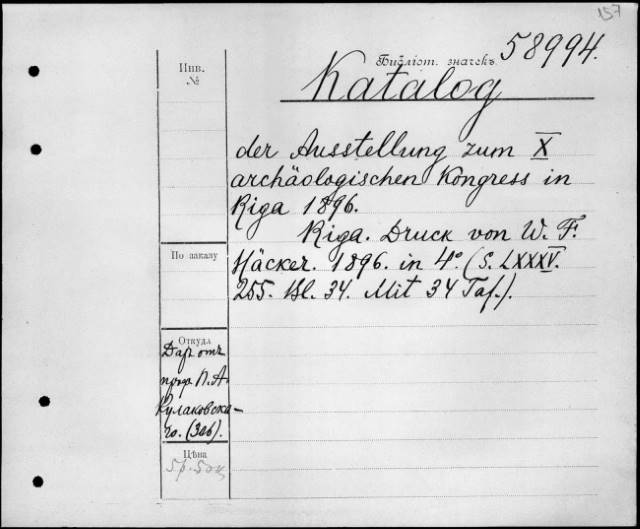 157
Библіот. значекъ 58994.
Katalog
Инв.
№
der Ausstellung zum X
archäologischen Kongress in
Riga 1896.
Riga. Druck von W. F.
Häcker. 1896. in 4° (S. LXXXV.
255. Bl. 34. Mit 34 Taf.).
По заказу
Откуда
Даръ отъ
проф. П. А.
Кулаковска-
го. (306).
Цѣна
5 р. 50 к.